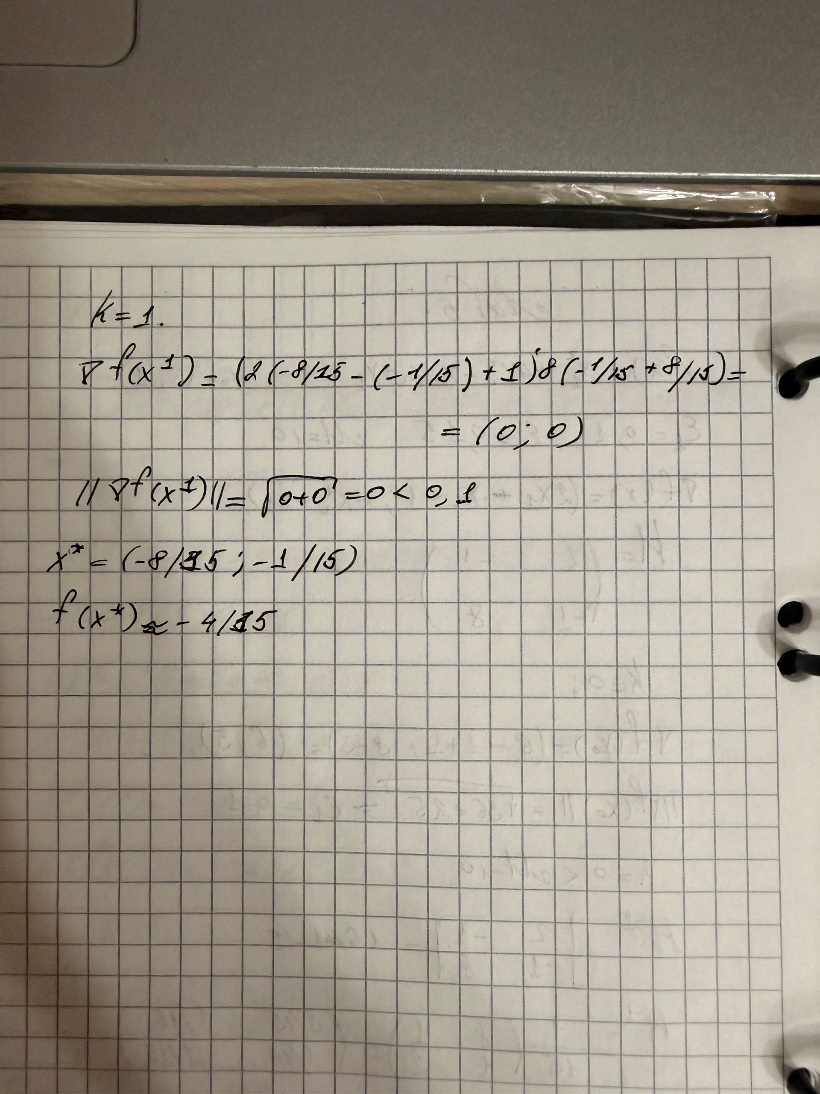 k=1.
∇f(x¹)=(2(-8/15-(-1/15)+1);8(-1/15+8/15)=
=(0;0)
||∇f(x¹)||=√0+0=0<0,1
x*=(-8/15;-1/15)
f(x*)≈-4/15